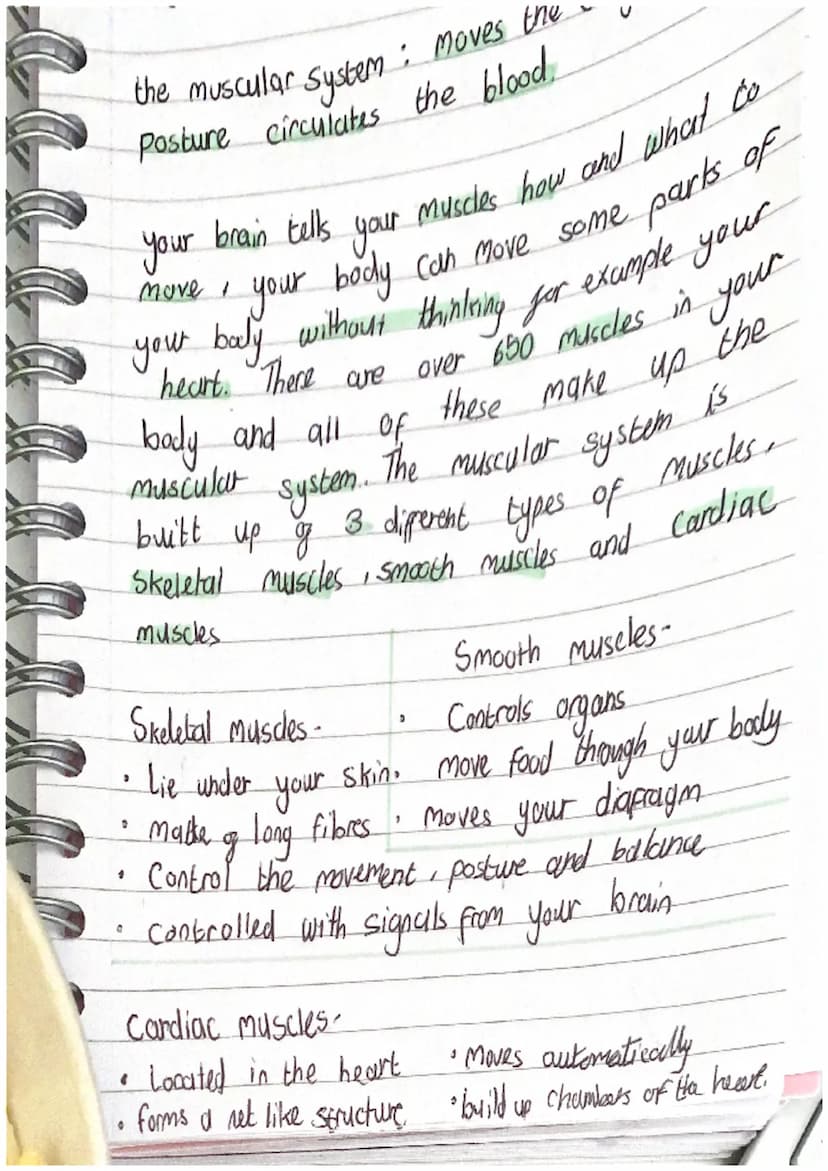 the muscular system : moves the
posture circulates the blood.
your brain tells your muscles how and what to
move, your body can move some parts of
your body without thinking for example your
heart. There are over 650 muscles in your
body and all of these make up the
muscular system. The muscular system is
built up of 3 different types of muscles,
Skeletal muscles, smooth muscles and cardiac
muscles
Smooth muscles-
Skeletal muscles-
• Controls organs
• Lie under your skin.
move food through your body
• made of long fibres
• moves your diafragm
• Control the movement, posture and balance
• controlled with signals from your brain
Cardiac muscles-
• Located in the heart
• moves automatically
• forms a net like structure
• build up chambers of the heart.